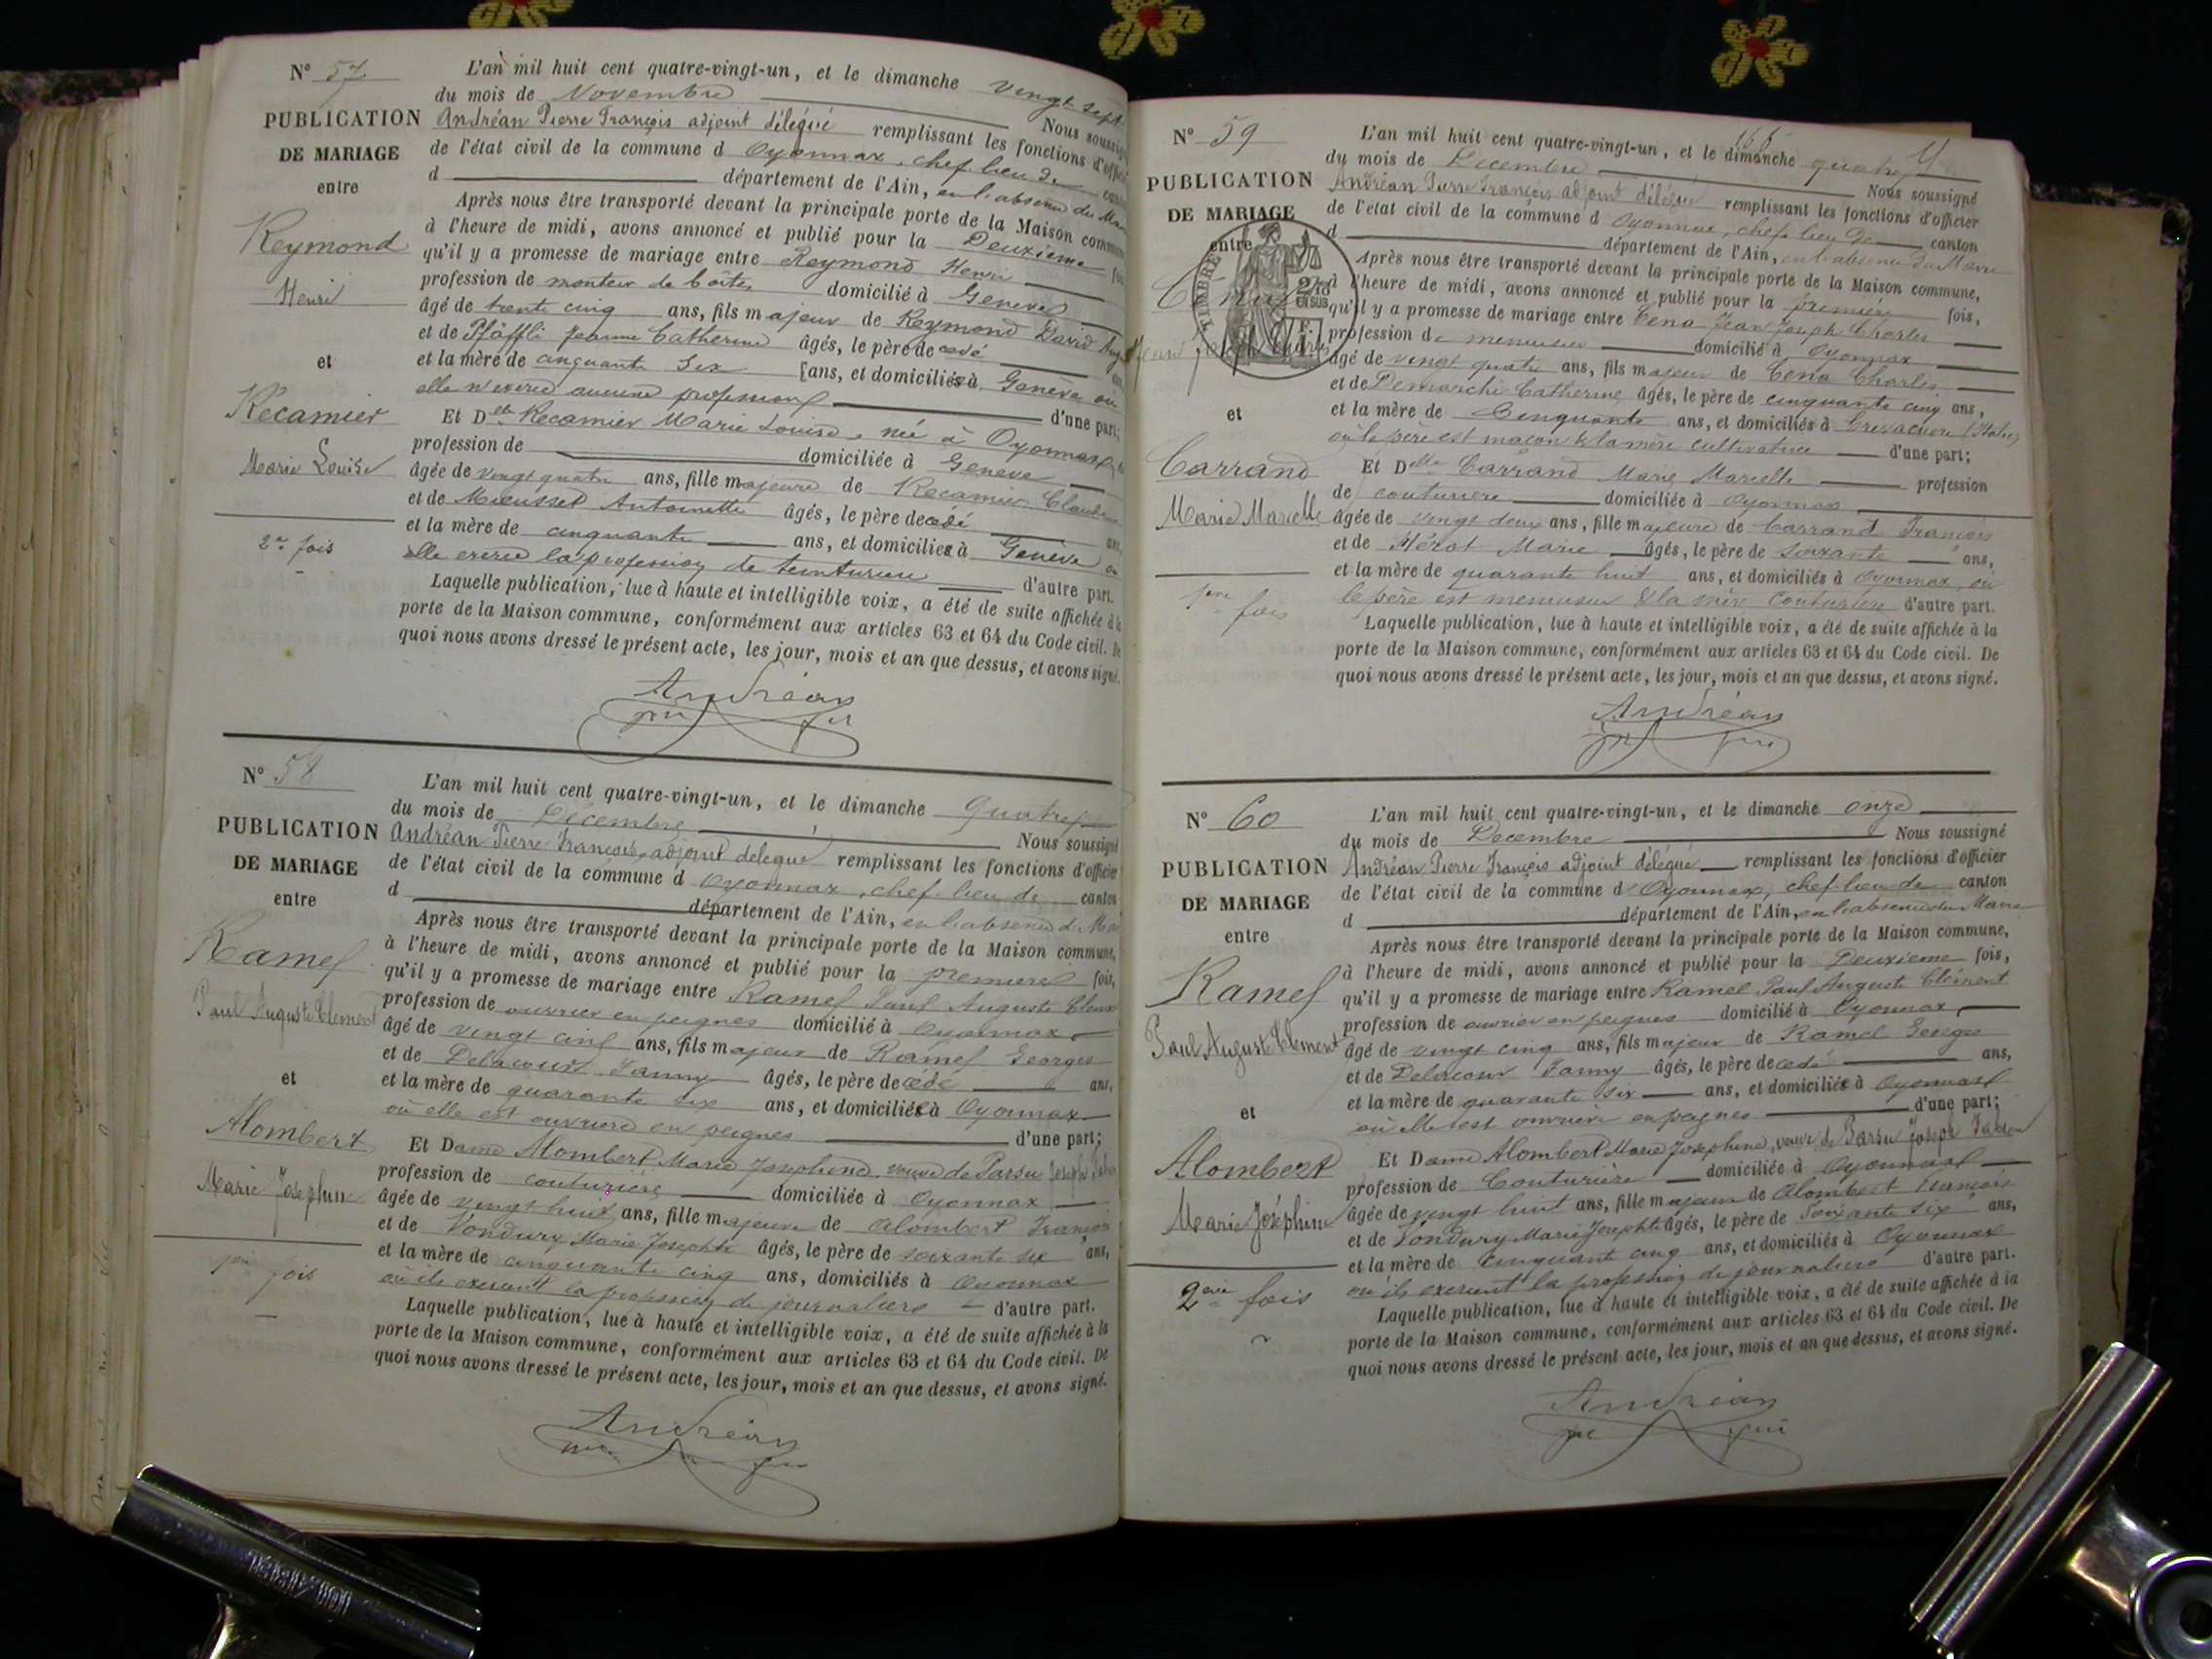 N° 57
PUBLICATION
DE MARIAGE
entre
Reymond
Henri
et
Récamier
Marie Louise
2e fois
L'an mil huit cent quatre-vingt-un, et le dimanche vingt sept
du mois de Novembre Nous soussigné
Andréan Pierre François adjoint délégué remplissant les fonctions d'officier
de l'état civil de la commune d Oyonnax, chef lieu de
d département de l'Ain, en l'absence du
Après nous être transporté devant la principale porte de la Maison commune
à l'heure de midi, avons annoncé et publié pour la Deuxième fois
qu'il y a promesse de mariage entre Reymond Henri
profession de monteur de boîtes domicilié à Genève
âgé de trente cinq ans, fils majeur de Reymond David
et de Pfäffli Jeanne Catherine âgés, le père decedé
et la mère de cinquante six ans, et domiciliés à Genève où
elle n'exerce aucune profession d'une part;
Et Delle Récamier Marie Louise, née à Oyonnax
profession de domiciliée à Genève
âgée de vingt quatre ans, fille majeure de Récamier
et de Mieusset Antoinette âgés, le père decédé
et la mère de cinquante ans, et domiciliés à Genève où
elle exerce la profession de teinturière d'autre part.
Laquelle publication, lue à haute et intelligible voix, a été de suite affichée à la
porte de la Maison commune, conformément aux articles 63 et 64 du Code civil. De
quoi nous avons dressé le présent acte, les jour, mois et an que dessus, et avons signé.
Andréan
N° 58
PUBLICATION
DE MARIAGE
entre
Ramel
Paul Auguste Clément
et
Alombert
Marie Joséphine
1ère fois
L'an mil huit cent quatre-vingt-un, et le dimanche Quatre
du mois de Décembre Nous soussigné
Andréan Pierre François, adjoint délégué remplissant les fonctions d'officier
de l'état civil de la commune d Oyonnax, chef-lieu de canton
d département de l'Ain, en l'absence du
Après nous être transporté devant la principale porte de la Maison commune,
à l'heure de midi, avons annoncé et publié pour la première fois,
qu'il y a promesse de mariage entre Ramel Paul Auguste
profession de ouvrier en peignes domicilié à Oyonnax
âgé de vingt cinq ans, fils majeur de Ramel Georges
et de Delacour Fanny âgés, le père decédé ans,
et la mère de quarante six ans, et domiciliés à Oyonnax
où elle est ouvrière en peignes d'une part;
Et Dame Alombert Marie Josephine, veuve de Passu Joseph
profession de couturière domiciliée à Oyonnax
âgée de vingt huit ans, fille majeure de Alombert François
et de Vondury Marie Josephte âgés, le père de soixante six ans,
et la mère de cinquante cinq ans, domiciliés à Oyonnax
où ils exercent la profession de journaliers d'autre part.
Laquelle publication, lue à haute et intelligible voix, a été de suite affichée à la
porte de la Maison commune, conformément aux articles 63 et 64 du Code civil. De
quoi nous avons dressé le présent acte, les jour, mois et an que dessus, et avons signé.
Andréan
N° 59
PUBLICATION
DE MARIAGE
entre
TIMBRE
EN SUS
et
Carrand
Marie Marcelle
1ère fois
L'an mil huit cent quatre-vingt-un, et le dimanche quatre
du mois de Décembre Nous soussigné
Andréan Pierre François adjoint délégué remplissant les fonctions d'officier
de l'état civil de la commune d Oyonnax, chef lieu de canton
d département de l'Ain, en l'absence du Maire
Après nous être transporté devant la principale porte de la Maison commune,
à l'heure de midi, avons annoncé et publié pour la première fois,
qu'il y a promesse de mariage entre Cena Jean Joseph Charles
profession de menuisier domicilié à Oyonnax
âgé de vingt quatre ans, fils majeur de Cena Charles
et de Demarchi Catherine âgés, le père de cinquante cinq ans,
et la mère de Cinquante ans, et domiciliés à Crevacuore (Italie)
où le père est maçon & la mère cultivatrice d'une part;
Et Delle Carrand Marie Marcelle profession
de couturière domiciliée à Oyonnax
âgée de vingt deux ans, fille majeure de Carrand François
et de Mérat Marie âgés, le père de soixante ans,
et la mère de quarante huit ans, et domiciliés à Oyonnax, où
le père est menuisier & la mère couturière d'autre part.
Laquelle publication, lue à haute et intelligible voix, a été de suite affichée à la
porte de la Maison commune, conformément aux articles 63 et 64 du Code civil. De
quoi nous avons dressé le présent acte, les jour, mois et an que dessus, et avons signé.
Andréan
N° 60
PUBLICATION
DE MARIAGE
entre
Ramel
Paul August Clément
et
Alombert
Marie Joséphine
2ème fois
L'an mil huit cent quatre-vingt-un, et le dimanche onze
du mois de Décembre Nous soussigné
Andréan Pierre François adjoint délégué remplissant les fonctions d'officier
de l'état civil de la commune d Oyonnax, chef lieu de canton
d département de l'Ain, en l'absence du Maire
Après nous être transporté devant la principale porte de la Maison commune,
à l'heure de midi, avons annoncé et publié pour la Deuxième fois,
qu'il y a promesse de mariage entre Ramel Paul Auguste Clément
profession de ouvrier en peignes domicilié à Oyonnax
âgé de vingt cinq ans, fils majeur de Ramel Georges
et de Delacour Fanny âgés, le père decedé ans,
et la mère de quarante six ans, et domiciliés à Oyonnax
où elle est ouvrière en peignes d'une part;
Et Dame Alombert Marie Joséphine, veuve de Passu Joseph
profession de Couturière domiciliée à Oyonnax
âgée de vingt huit ans, fille majeure de Alombert François
et de Vondury Marie Josephte âgés, le père de Soixante six ans,
et la mère de cinquante cinq ans, et domiciliés à Oyonnax
où ils exercent la profession de journaliers d'autre part.
Laquelle publication, lue à haute et intelligible voix, a été de suite affichée à la
porte de la Maison commune, conformément aux articles 63 et 64 du Code civil. De
quoi nous avons dressé le présent acte, les jour, mois et an que dessus, et avons signé.
Andréan